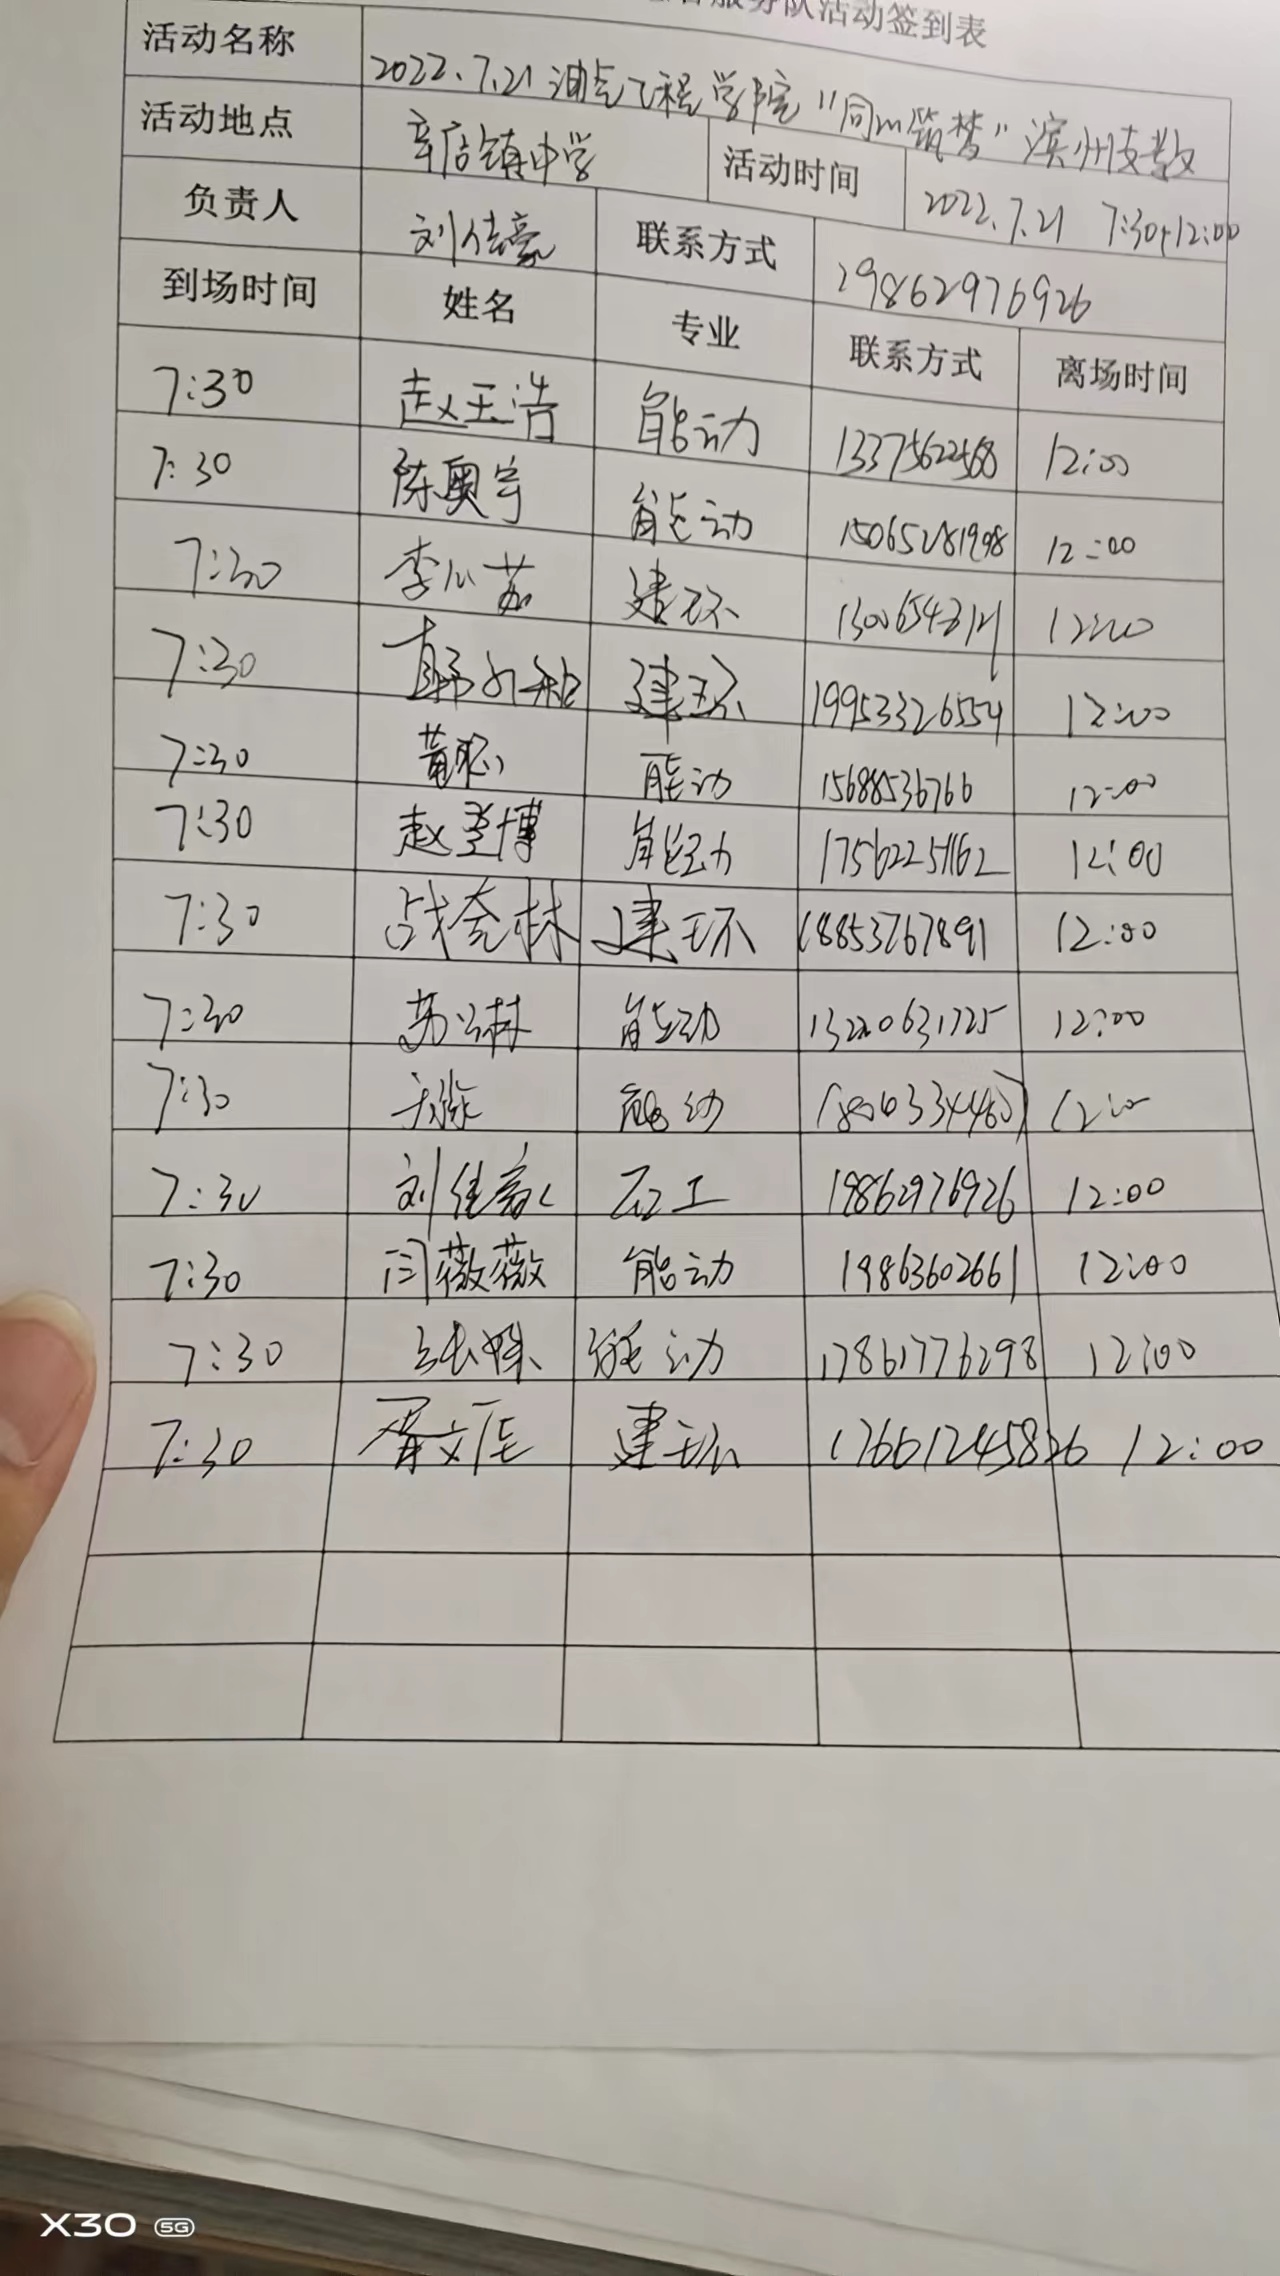 服务队活动签到表
活动名称 2022.7.21 油气工程学院"同心筑梦"滨州支教
活动地点 辛店镇中学 活动时间 2022.7.21 7:30-12:00
负责人 刘佳豪 联系方式 19862976926
到场时间 姓名 专业 联系方式 离场时间
7:30 赵玉浩 能动 13375622568 12:00
7:30 陈奥宇 能动 15065281998 12:00
7:30 李心茹 建环 12:00
7:30 建环 19953326554 12:00
7:30 黄 能动 15688536766 12:00
7:30 赵圣博 能动 17562251162 12:00
7:30 战奎林 建环 18853767891 12:00
7:30 苏 林 能动 13220631725 12:00
7:30 能动 12:00
7:30 刘佳豪 石工 19862976926 12:00
7:30 闫薇薇 能动 19863602661 12:00
7:30 张姝 能动 17861776298 12:00
7:30 胥文 建环 17661245826 12:00
X30 5G